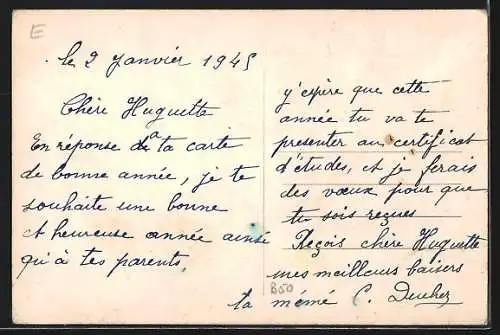 E
le 2 Janvier 1945
Chère Huguette
En réponse de ta carte
de bonne année, je te
souhaite une bonne
et heureuse année ainsi
qu'à tes parents,
y'espère que cette
année tu va te
presenter au certificat
d'études, et je ferais
des vœux pour que
tu sois reçues
Reçois chère Huguette
mes meilleurs baisers
ta mémé C.
B50